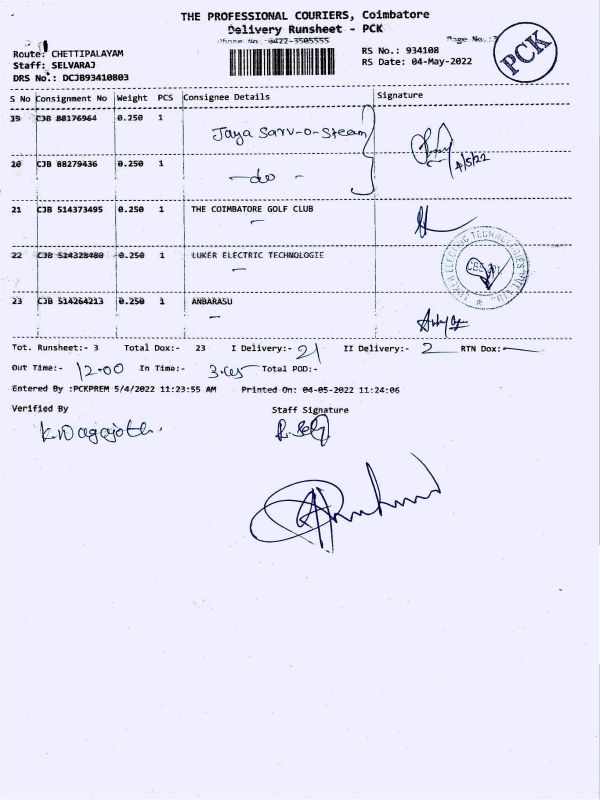 THE PROFESSIONAL COURIERS, Coimbatore
Delivery Runsheet - PCK
Phone No. :0422-3505555 Page No.:3
PCK
Route: CHETTIPALAYAM RS No.: 934108
Staff: SELVARAJ RS Date: 04-May-2022
DRS No.: DCJB93410803
S No Consignment No Weight PCS Consignee Details Signature
19 CJB 88176964 0.250 1 Jaya Sarv-o-Steam
4/5/22
20 CJB 88279436 0.250 1 -do -
21 CJB 514373495 0.250 1 THE COIMBATORE GOLF CLUB
22 CJB 514328480 0.250 1 LUKER ELECTRIC TECHNOLOGIE
LUKER ELECTRIC TECHNOLOGIES
23 CJB 514264213 0.250 1 ANBARASU
Tot. Runsheet:- 3 Total Dox:- 23 I Delivery:- 21 II Delivery:- 2 RTN Dox:-
Out Time:- 12.00 In Time:- Total POD:-
Entered By :PCKPREM 5/4/2022 11:23:55 AM Printed On: 04-05-2022 11:24:06
Verified By Staff Signature